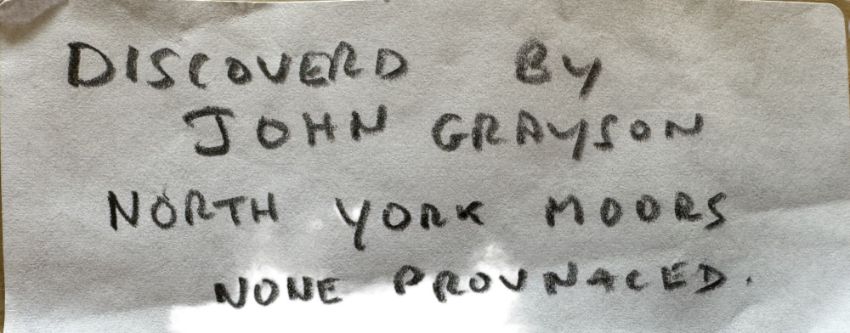 DISCOVERD BY
JOHN GRAYSON
NORTH YORK MOORS
NONE PROVNACED.